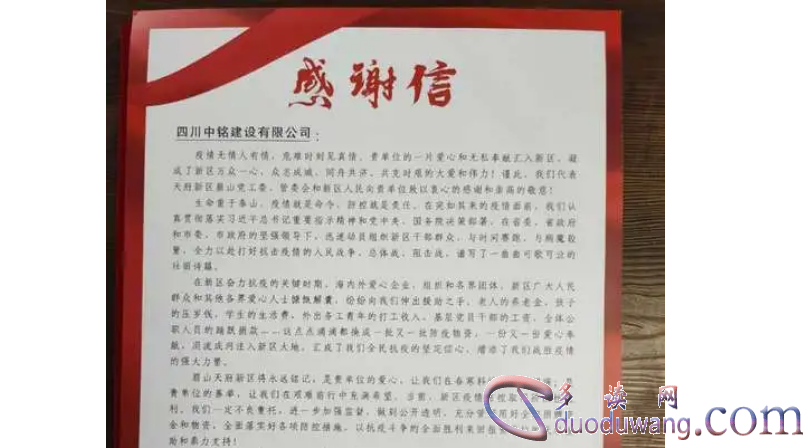 感谢信
四川中铭建设有限公司：
疫情无情人有情，危难时刻见真情，贵单位的一片爱心和无私奉献汇入新区，凝
成了新区万众一心，众志成城，同舟共济，共克时艰的大爱和伟力！谨此，我们代表
天府新区眉山党工委、管委会和新区人民向贵单位致以衷心的感谢和崇高的敬意！
生命重于泰山，疫情就是命令，防控就是责任。在突如其来的疫情面前，我们认
真贯彻落实习近平总书记重要指示精神和党中央、国务院决策部署，在省委、省政府
和市委、市政府的坚强领导下，迅速动员组织新区干部群众，与时间赛跑，与病魔较
量，全力以赴打好抗击疫情的人民战争、总体战、阻击战，谱写了一曲曲可歌可泣的
壮丽诗篇。
在新区奋力抗疫的关键时期，海内外爱心企业，组织和各界团体，新区广大人民
群众和其他各界爱心人士慷慨解囊，纷纷向我们伸出援助之手，老人的养老金，孩子
的压岁钱，学生的生活费，外出务工青年的打工收入，基层党员干部的工资，全体公
职人员的踊跃捐款……这点点滴滴都换成一批又一批防疫物资，一份又一份爱心奉
献，涓流成河注入新区大地，汇成了我们全民抗疫的坚定信心，增添了我们战胜疫情
的强大力量。
眉山天府新区将永远铭记，是贵单位的爱心，让我们在春寒料
贵单位的善举，让我们在艰难前行中充满希望，当前，新区疫情
利，我们一定不负重托，进一步加强监督，做到公开透明，充分
金和物资，全面落实好各项防控措施，以抗疫斗争的全面胜利来回报
助和鼎力支持！
多读网
duoduwang.com